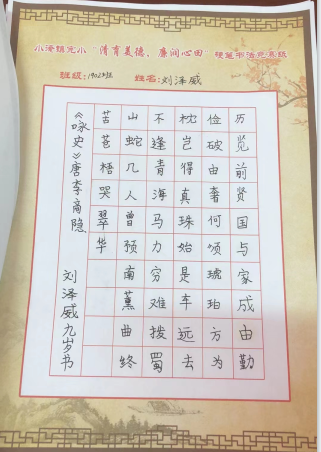 “清育美德、廉润心田”硬笔书法竞赛纸
班级:1902班 姓名:刘泽威
历览前贤国与家成由勤
俭破由奢何颂琥珀方为
枕岂得真珠始是车远去
不逢青海马力穷难拨蜀
山蛇几人曾预南薰曲终
苦苍梧哭翠华
《咏史》唐李商隐
刘泽威九岁书